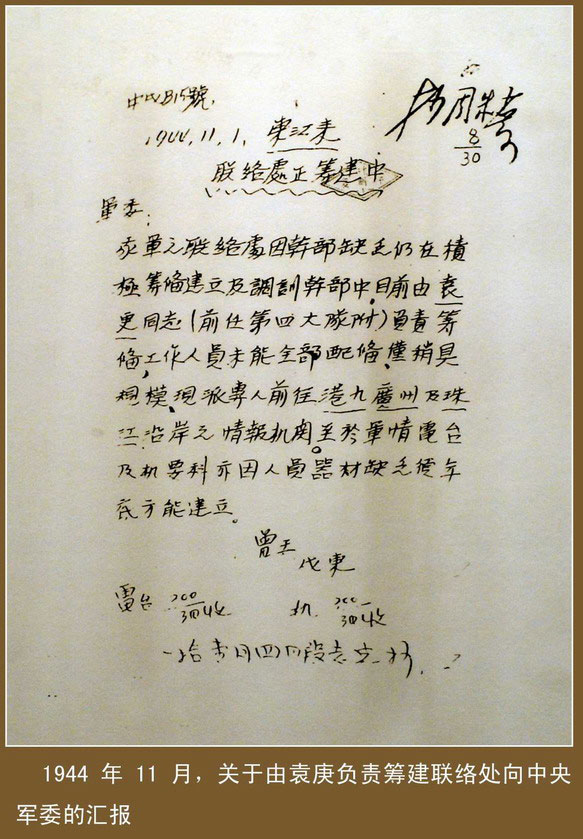 1944,11,1, 東江来
联络處正筹建中
軍委:
我軍之联络處因幹部缺乏仍在積
極筹备建立及調訓幹部中,目前由袁
更同志(前任第四大隊附)負責筹
备,工作人員未能全部配备,僅稍具
規模,現派專人前往港九廣州及珠
江沿岸之情報机関。至於軍情電台
及机要科亦因人員器材缺乏须年
底方能建立。
曾王
戊東
8
30
電台 收 机 收
1944 年 11 月，关于由袁庚负责筹建联络处向中央
军委的汇报